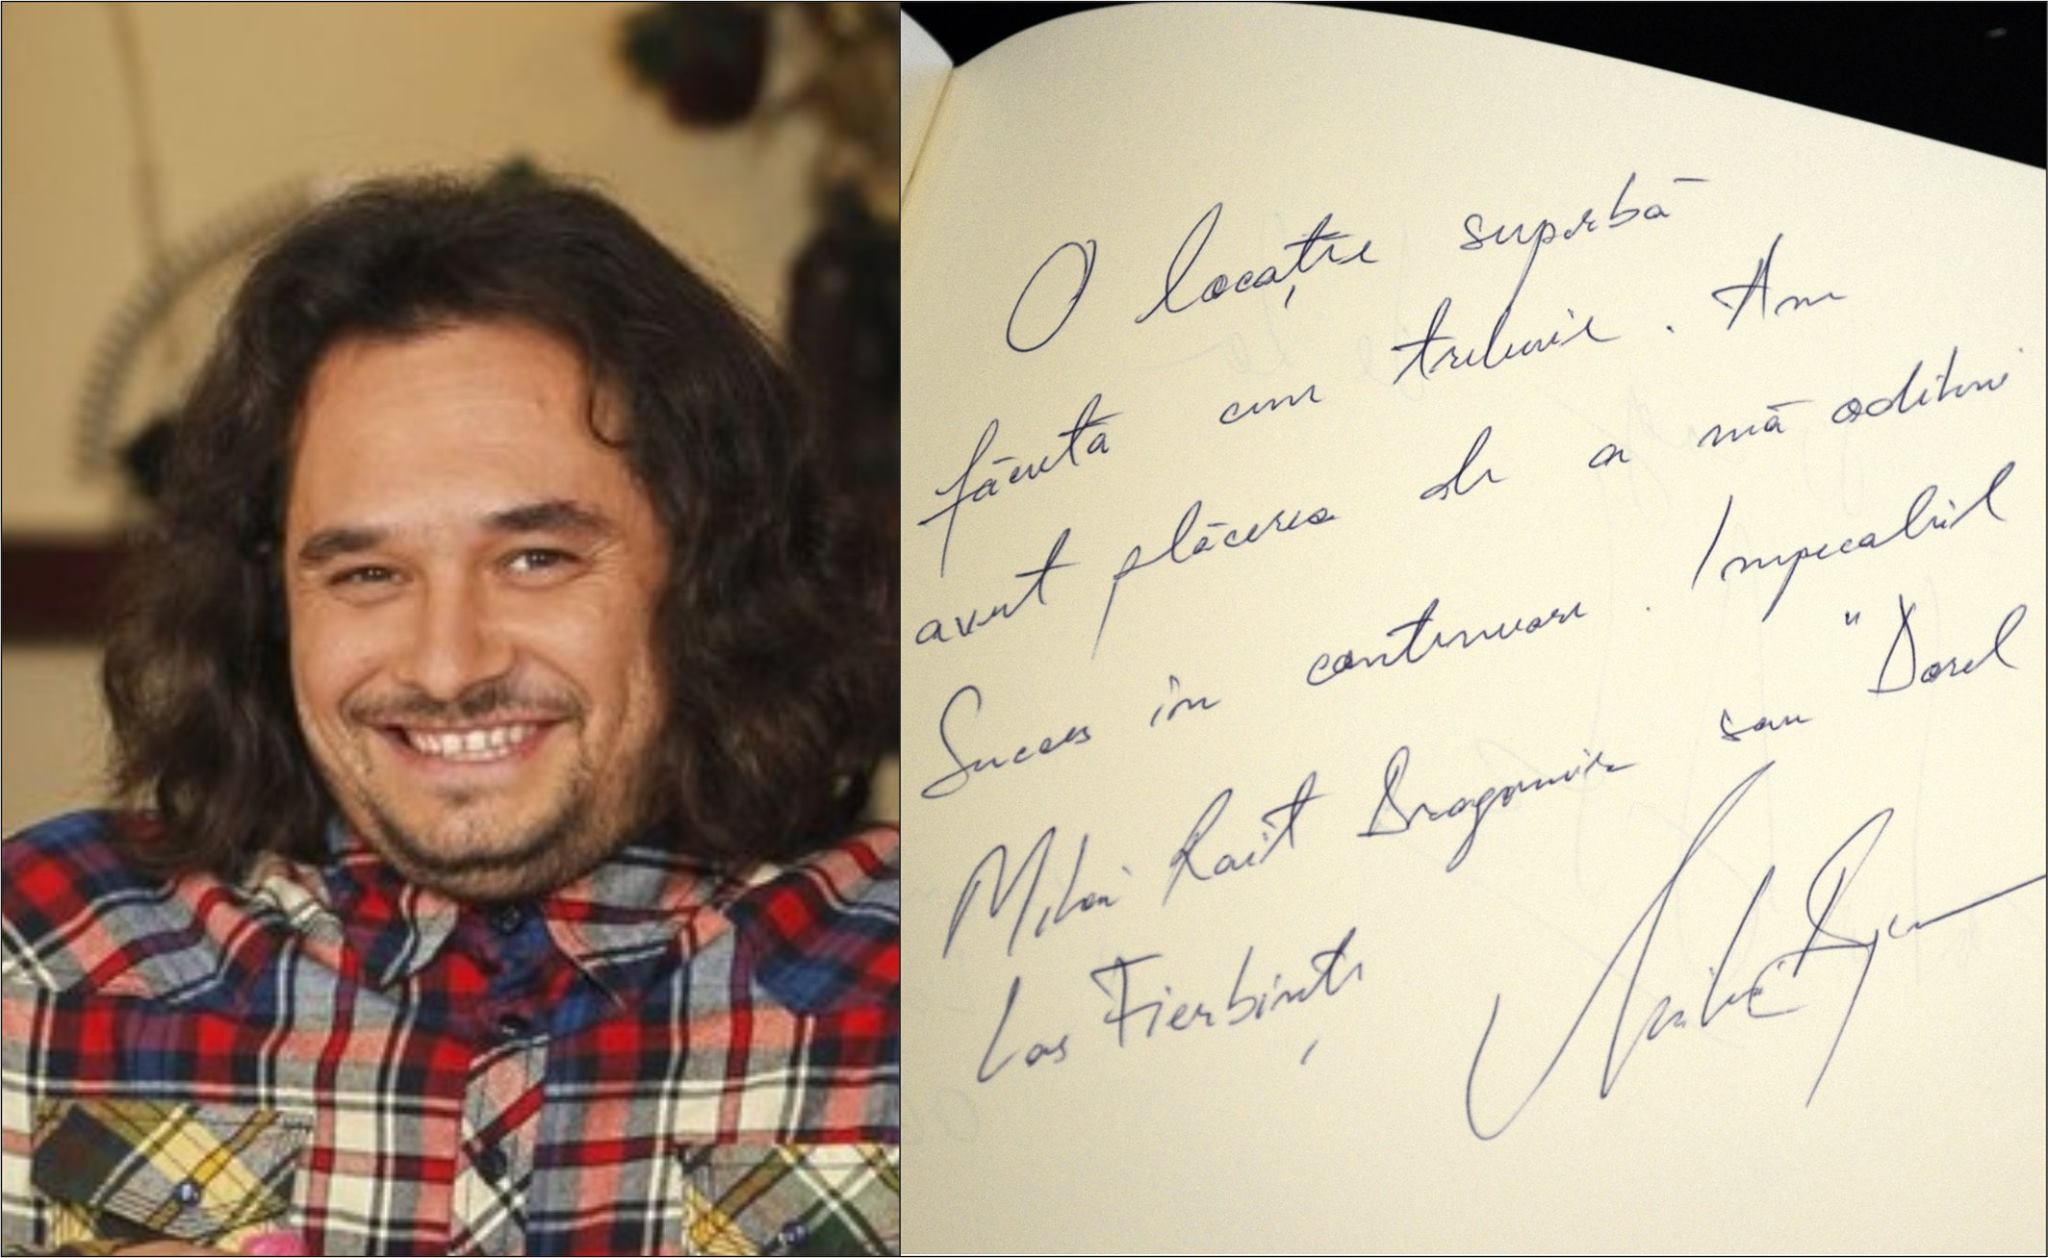 O locație superbă
făcută cum trebuie. Am
avut plăcerea de a mă odihni
Succes în continuare. Impecabil
Mihai Rait Dragomir sau "Dorel
Las Fierbinți